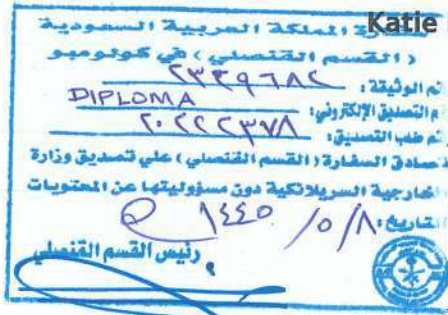 Katie
سفارة المملكة العربية السعودية
(القسم القنصلي) في كولومبو
رقم الوثيقة: ٢٣٣٩٦٨٢
DIPLOMA
رقم التصديق الإلكتروني:
رقم طلب التصديق: ٢٠٢٢٢٣٧٨
تصادق السفارة (القسم القنصلي) علي تصديق وزارة
الخارجية السريلانكية دون مسؤوليتها عن المحتويات
التاريخ: ٨/٥/١٤٤٥
رئيس القسم القنصلي